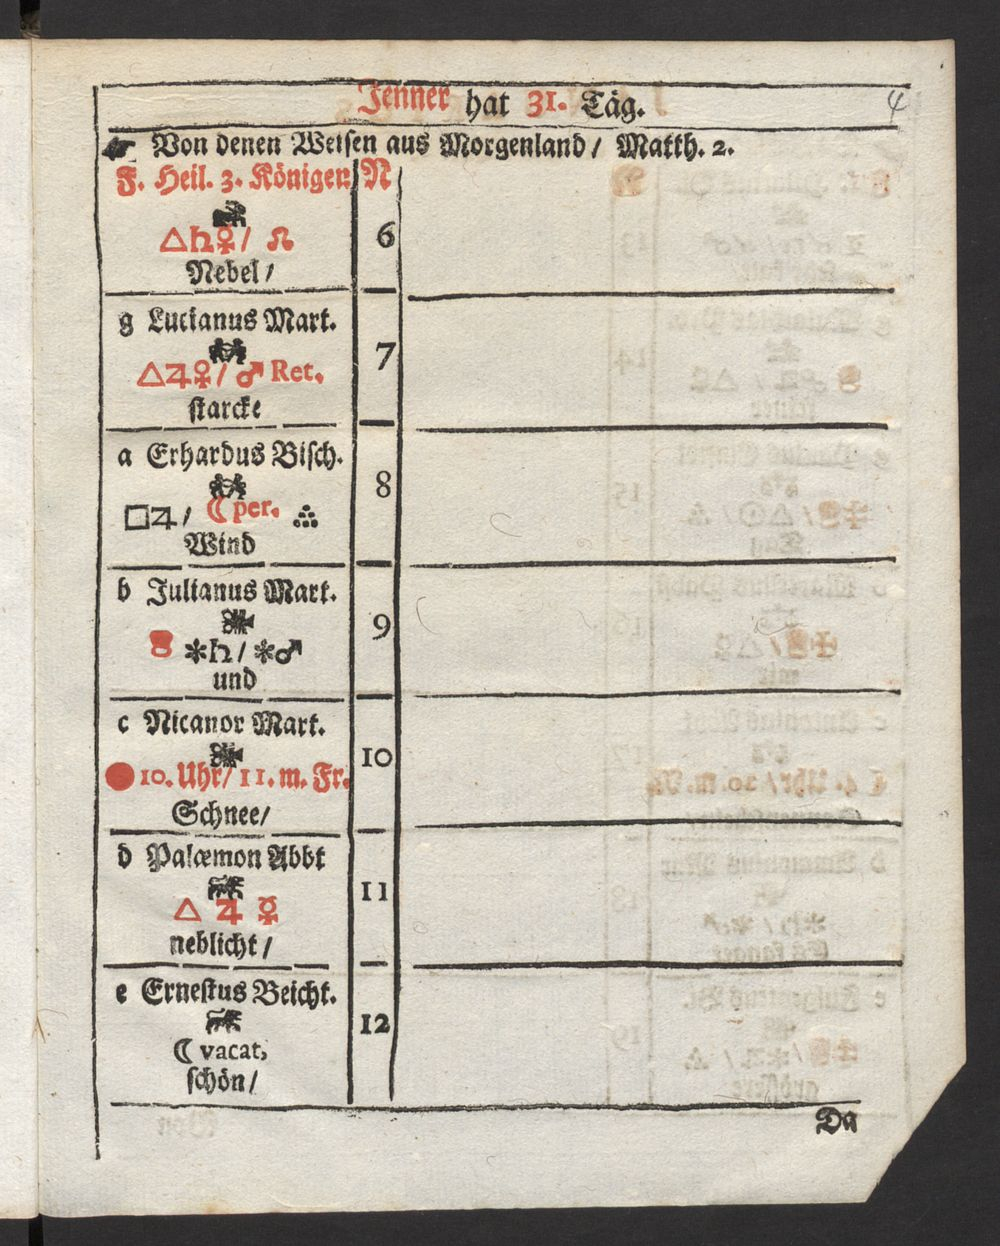 Jenner hat 31. Täg.
4
☛ Von denen Weisen aus Morgenland / Matth. 2.
F. Heil. 3. Königen N
△♄♀ / ♌ 6
Nebel /
g Lucianus Mart.
△♃♀ / ♂ Ret. 7
starcke
a Erhardus Bisch.
8
□♃ / ☾ per. ஃ
Wind
b Julianus Mart.
9
✻♄ / ✻♂
und
c Nicanor Mart.
10
● 10. Uhr / 11. m. Fr.
Schnee /
d Palæmon Abbt
11
△ ♃ ☿
neblicht /
e Ernestus Beicht.
12
☾ vacat,
schön /
Da